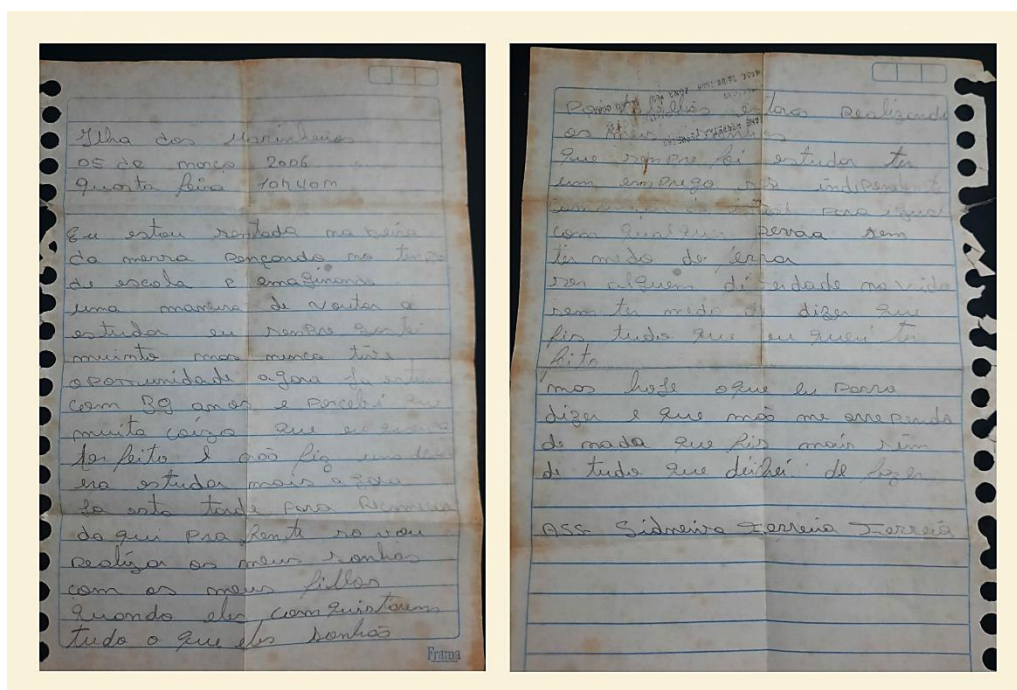 Ilha dos Marinheiros
05 de março 2006
quarta feira 10h40m
Eu estou sentada na beira
da meṣa pençando no tempo
de escola e emaginando
uma maneira de voutar a
estudar eu sempre gostei
muinto mas nunca tive
opornunidade agora ja estou
com 39 anos e percebi que
muita coiza que eu queria
ter feito e não fiz uma delas
era estudar mais agora
ja esta tarde para recomeçar
da qui pra frente so vou
realizar os meus sonhos
com os meus filhos
quando eles comquistarem
tudo o que eles sonhão
Frama
estara realizando
os meus
que sempre foi estudar ter
um emprego ser independente
para
com qualquer pessoa sem
ter medo de érra
ser alguem di verdade na vida
sem ter medo de dizer que
fis tudo que eu queri ter
feito
mas hoje oque eu posso
dizer e que não me arrependo
de nada que fis mais sim
de tudo que deichei de fazer
ASS Sidneira Ferreia Ferreia